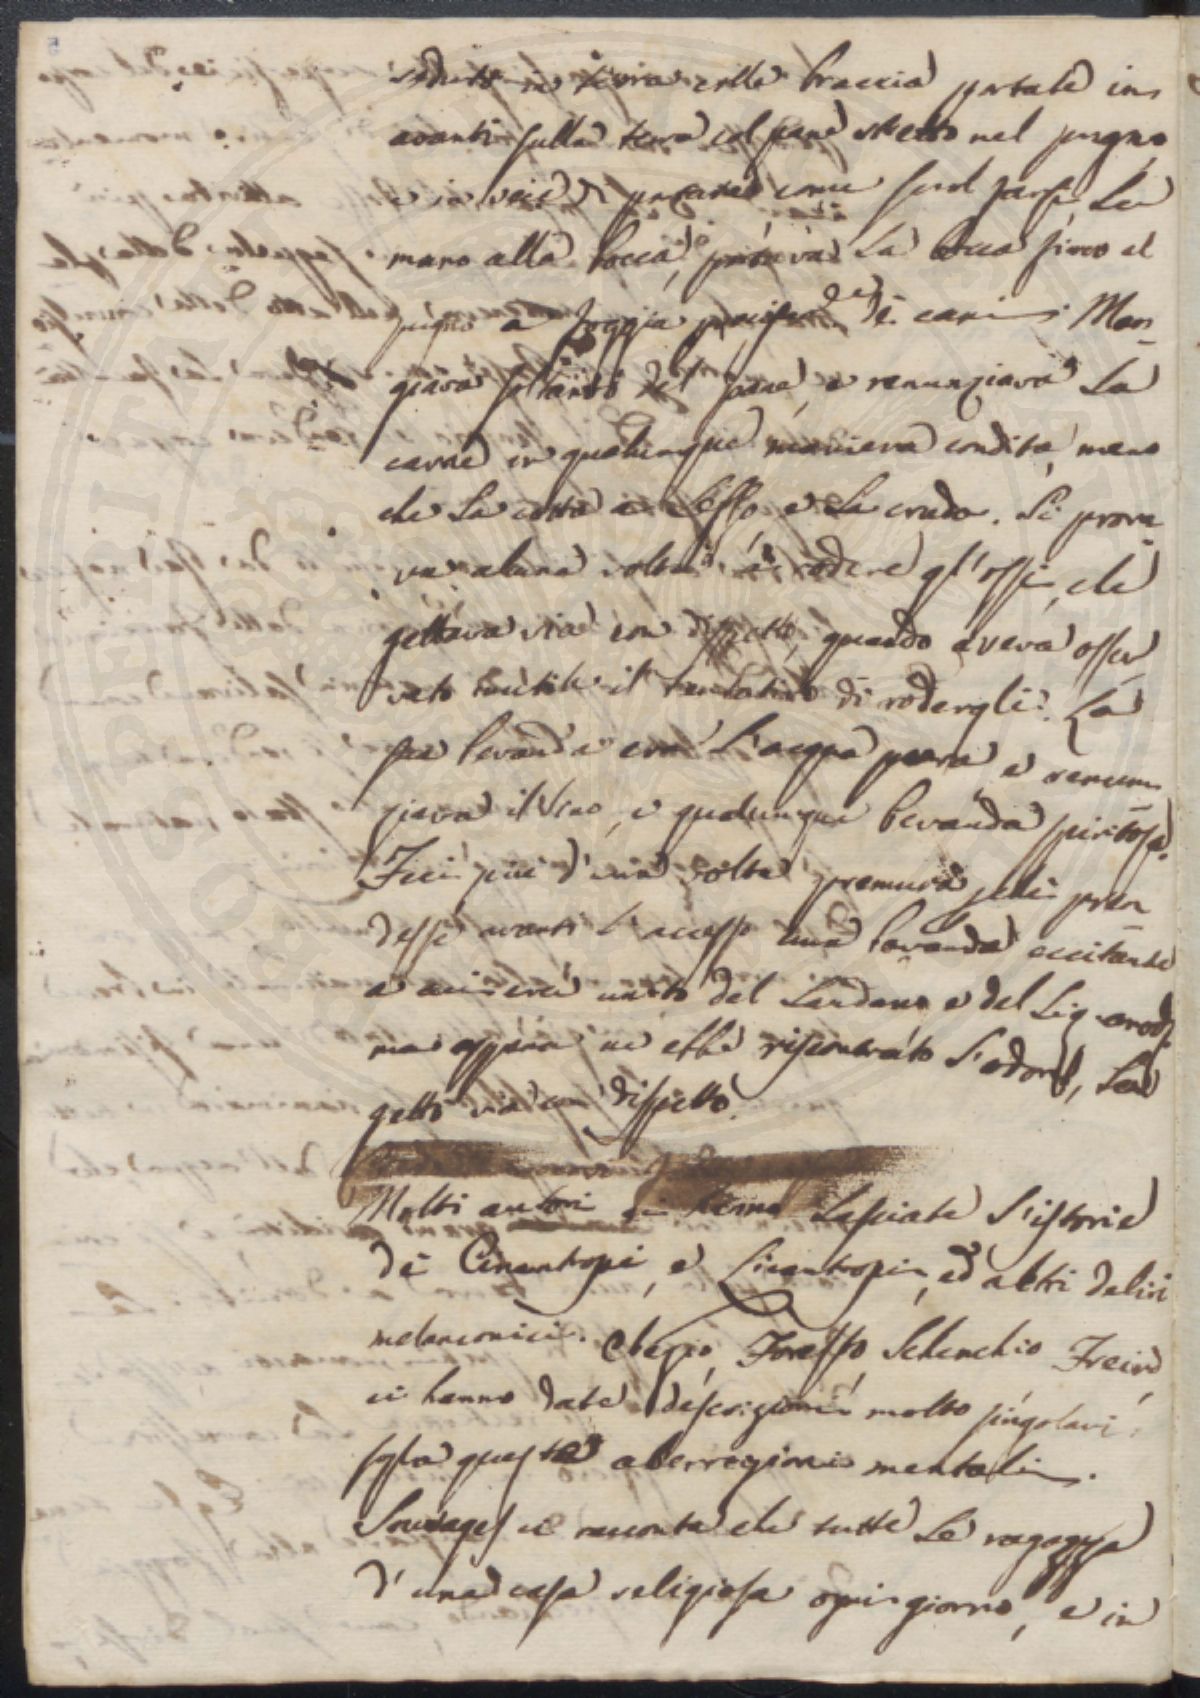 seduto in terra colle braccia portate in
avanti sulla terra col pane stretto nel pugno
e in vece di portare come suol farsi la
mano alla bocca, portava la bocca fino al
pugno a foggia de' cani. Man
giava soltanto del pane, e renunziava la
carne in qualunque maniera condita, meno
che la cotta a lesso, e la cruda. Si prova
va alcune volte a rodere gl'ossi, che
gettava via con dispetto, quando aveva osser
vato inutile il tentativo di rodergli. La
sua bevanda era l'acqua pura, e renun
ziava il vino, e qualunque bevanda spiritosa.
Feci più d'una volta premura che pren
desse avanti l'accesso una bevanda eccitante
e ci misi unito del Laudano e del Liq. anod.
ma appena ne ebbe riscontrato l'odore, la
gettò via con dispetto.
Molti autori ci hanno lasciate l'istorie
di Cinantropi, e Licantropi, ed altri deliri
melanconici. Foresto, Schenchio Freind,
ci hanno date descrizioni molto singolari
sopra queste aberrazioni mentali.
Sauvages ci racconta che tutte le ragazze
d'una casa religiosa ogni giorno, e in